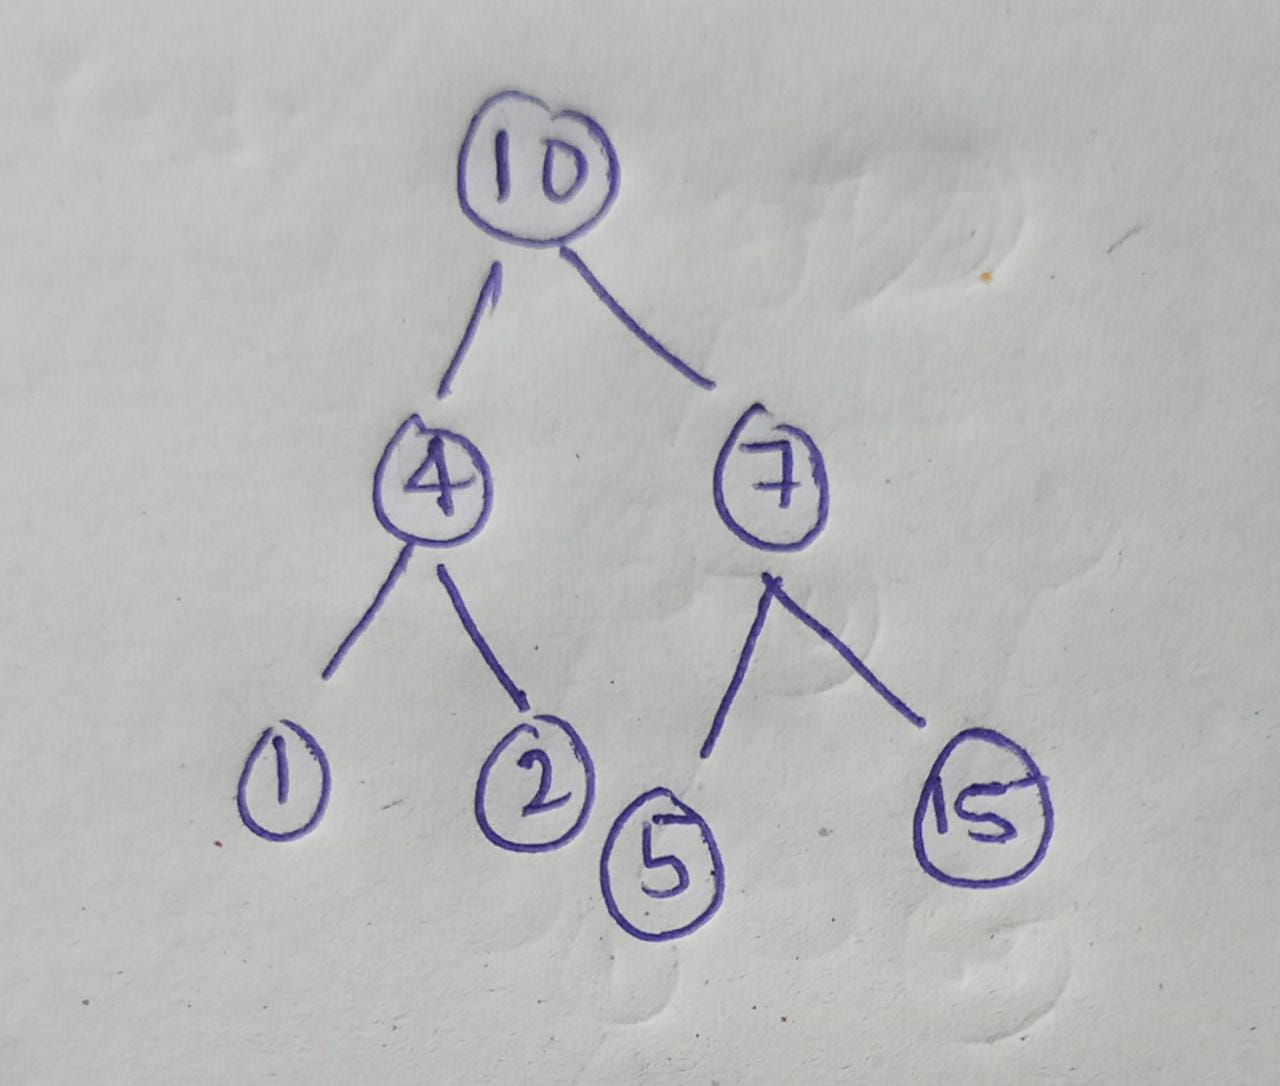 10
4 7
1 2 5 15